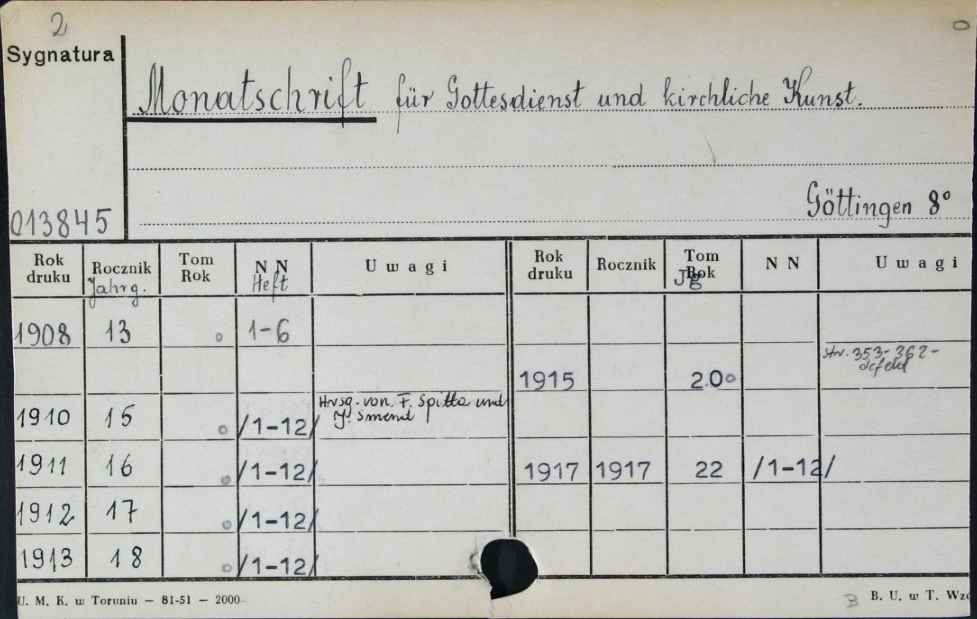 2
Sygnatura
Monatschrift für Gottesdienst und kirchliche Kunst.
Göttingen 8°
013845
Rok druku Rocznik Jahrg. Tom Rok N N Heft Uwagi Rok druku Rocznik Tom Rok Jg N N Uwagi
1908 13 1-6
1915 20 str. 353-362- defekt
1910 15 /1-12/ Hrsg. von F. Spitta und J. Smend
1911 16 /1-12/ 1917 1917 22 /1-12/
1912 17 /1-12/
1913 18 /1-12/
U. M. K. w Toruniu — 81-51 — 2000
B B. U. w T.